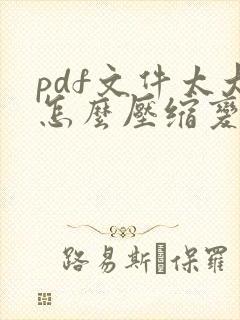 pdf文件太大
怎麼壓缩變
路易斯 保羅